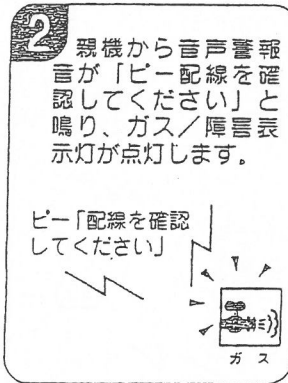 2
親機から音声警報
音が「ピー配線を確
認してください」と
鳴り、ガス／障害表
示灯が点灯します。
ピー「配線を確認
してください」
ガス